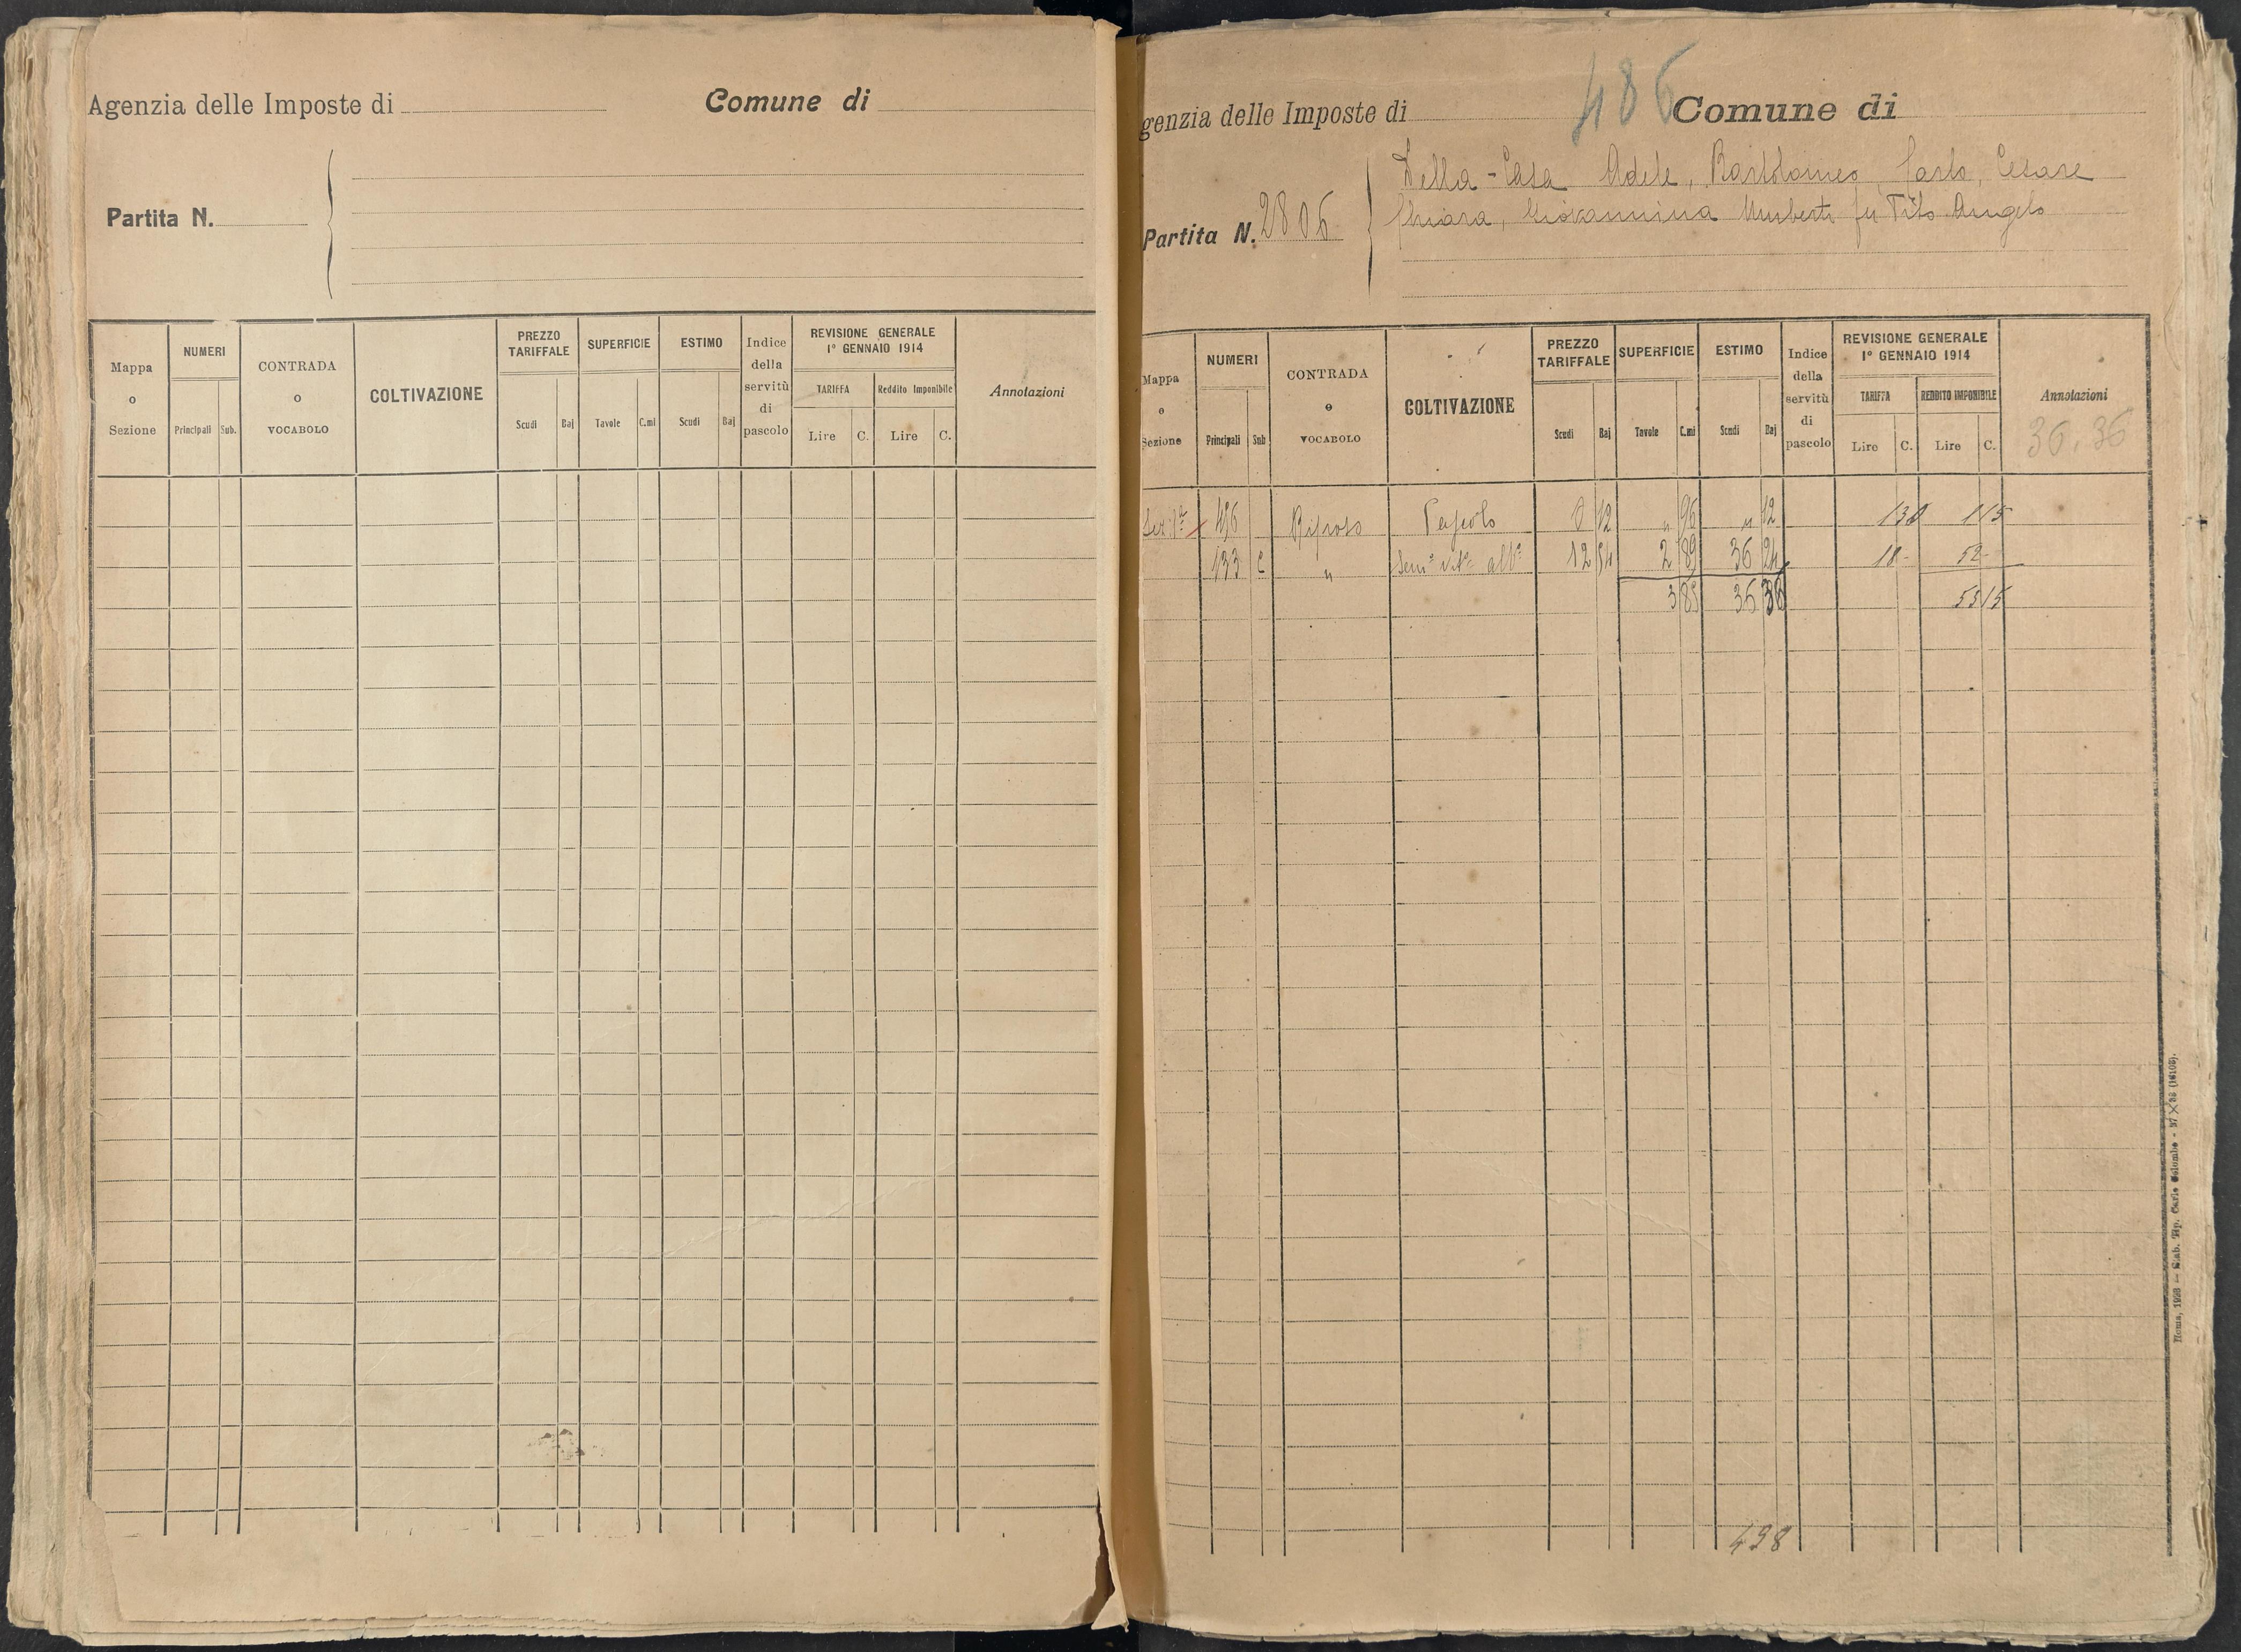 Agenzia delle Imposte di Comune di
Partita N.
Mappa o Sezione NUMERI Principali Sub. CONTRADA o VOCABOLO COLTIVAZIONE PREZZO TARIFFALE Scudi Baj SUPERFICIE Tavole C.mi ESTIMO Scudi Baj Indice della servitù di pascolo REVISIONE GENERALE 1° GENNAIO 1914 TARIFFA Lire C. Reddito Imponibile Lire C. Annotazioni
486
genzia delle Imposte di Comune di
Della-Casa Adele, Bartolomeo, Carlo, Cesare
Partita N. 2806
Chiara, Giovannina Umberto fu Tito Angelo
Mappa e Sezione NUMERI Principali Sub CONTRADA o VOCABOLO COLTIVAZIONE PREZZO TARIFFALE Scudi Baj SUPERFICIE Tavole C.mi ESTIMO Scudi Baj Indice della servitù di pascolo REVISIONE GENERALE 1° GENNAIO 1914 TARIFFA Lire C. REDDITO IMPONIBILE Lire C. Annotazioni
36.36
Sez. 1ª 496 Riposo Pascolo 0 12 " 96 " 12 1 30 1 15
133 C " Sem° vit° alb° 12 54 2 89 36 24 18 - 52 -
3 85 36 36 53 15
498
Roma, 1923 — Stab. Tip. Carlo Colombo